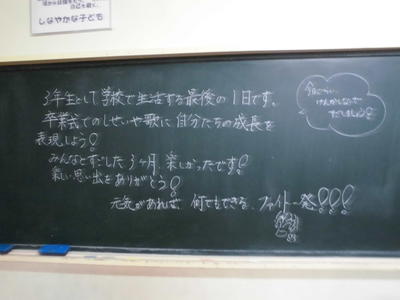 しなやかな子ども
3年生として学校で生活する最後の1日です。
卒業式でのしせいや歌に自分たちの成長を
表現しよう!
みんなとすごした3ヶ月、楽しかったです!
楽しい思い出をありがとう!
元気があれば、何でもできる、ファイトー発!!!
けんかしないで
すごしましょう!